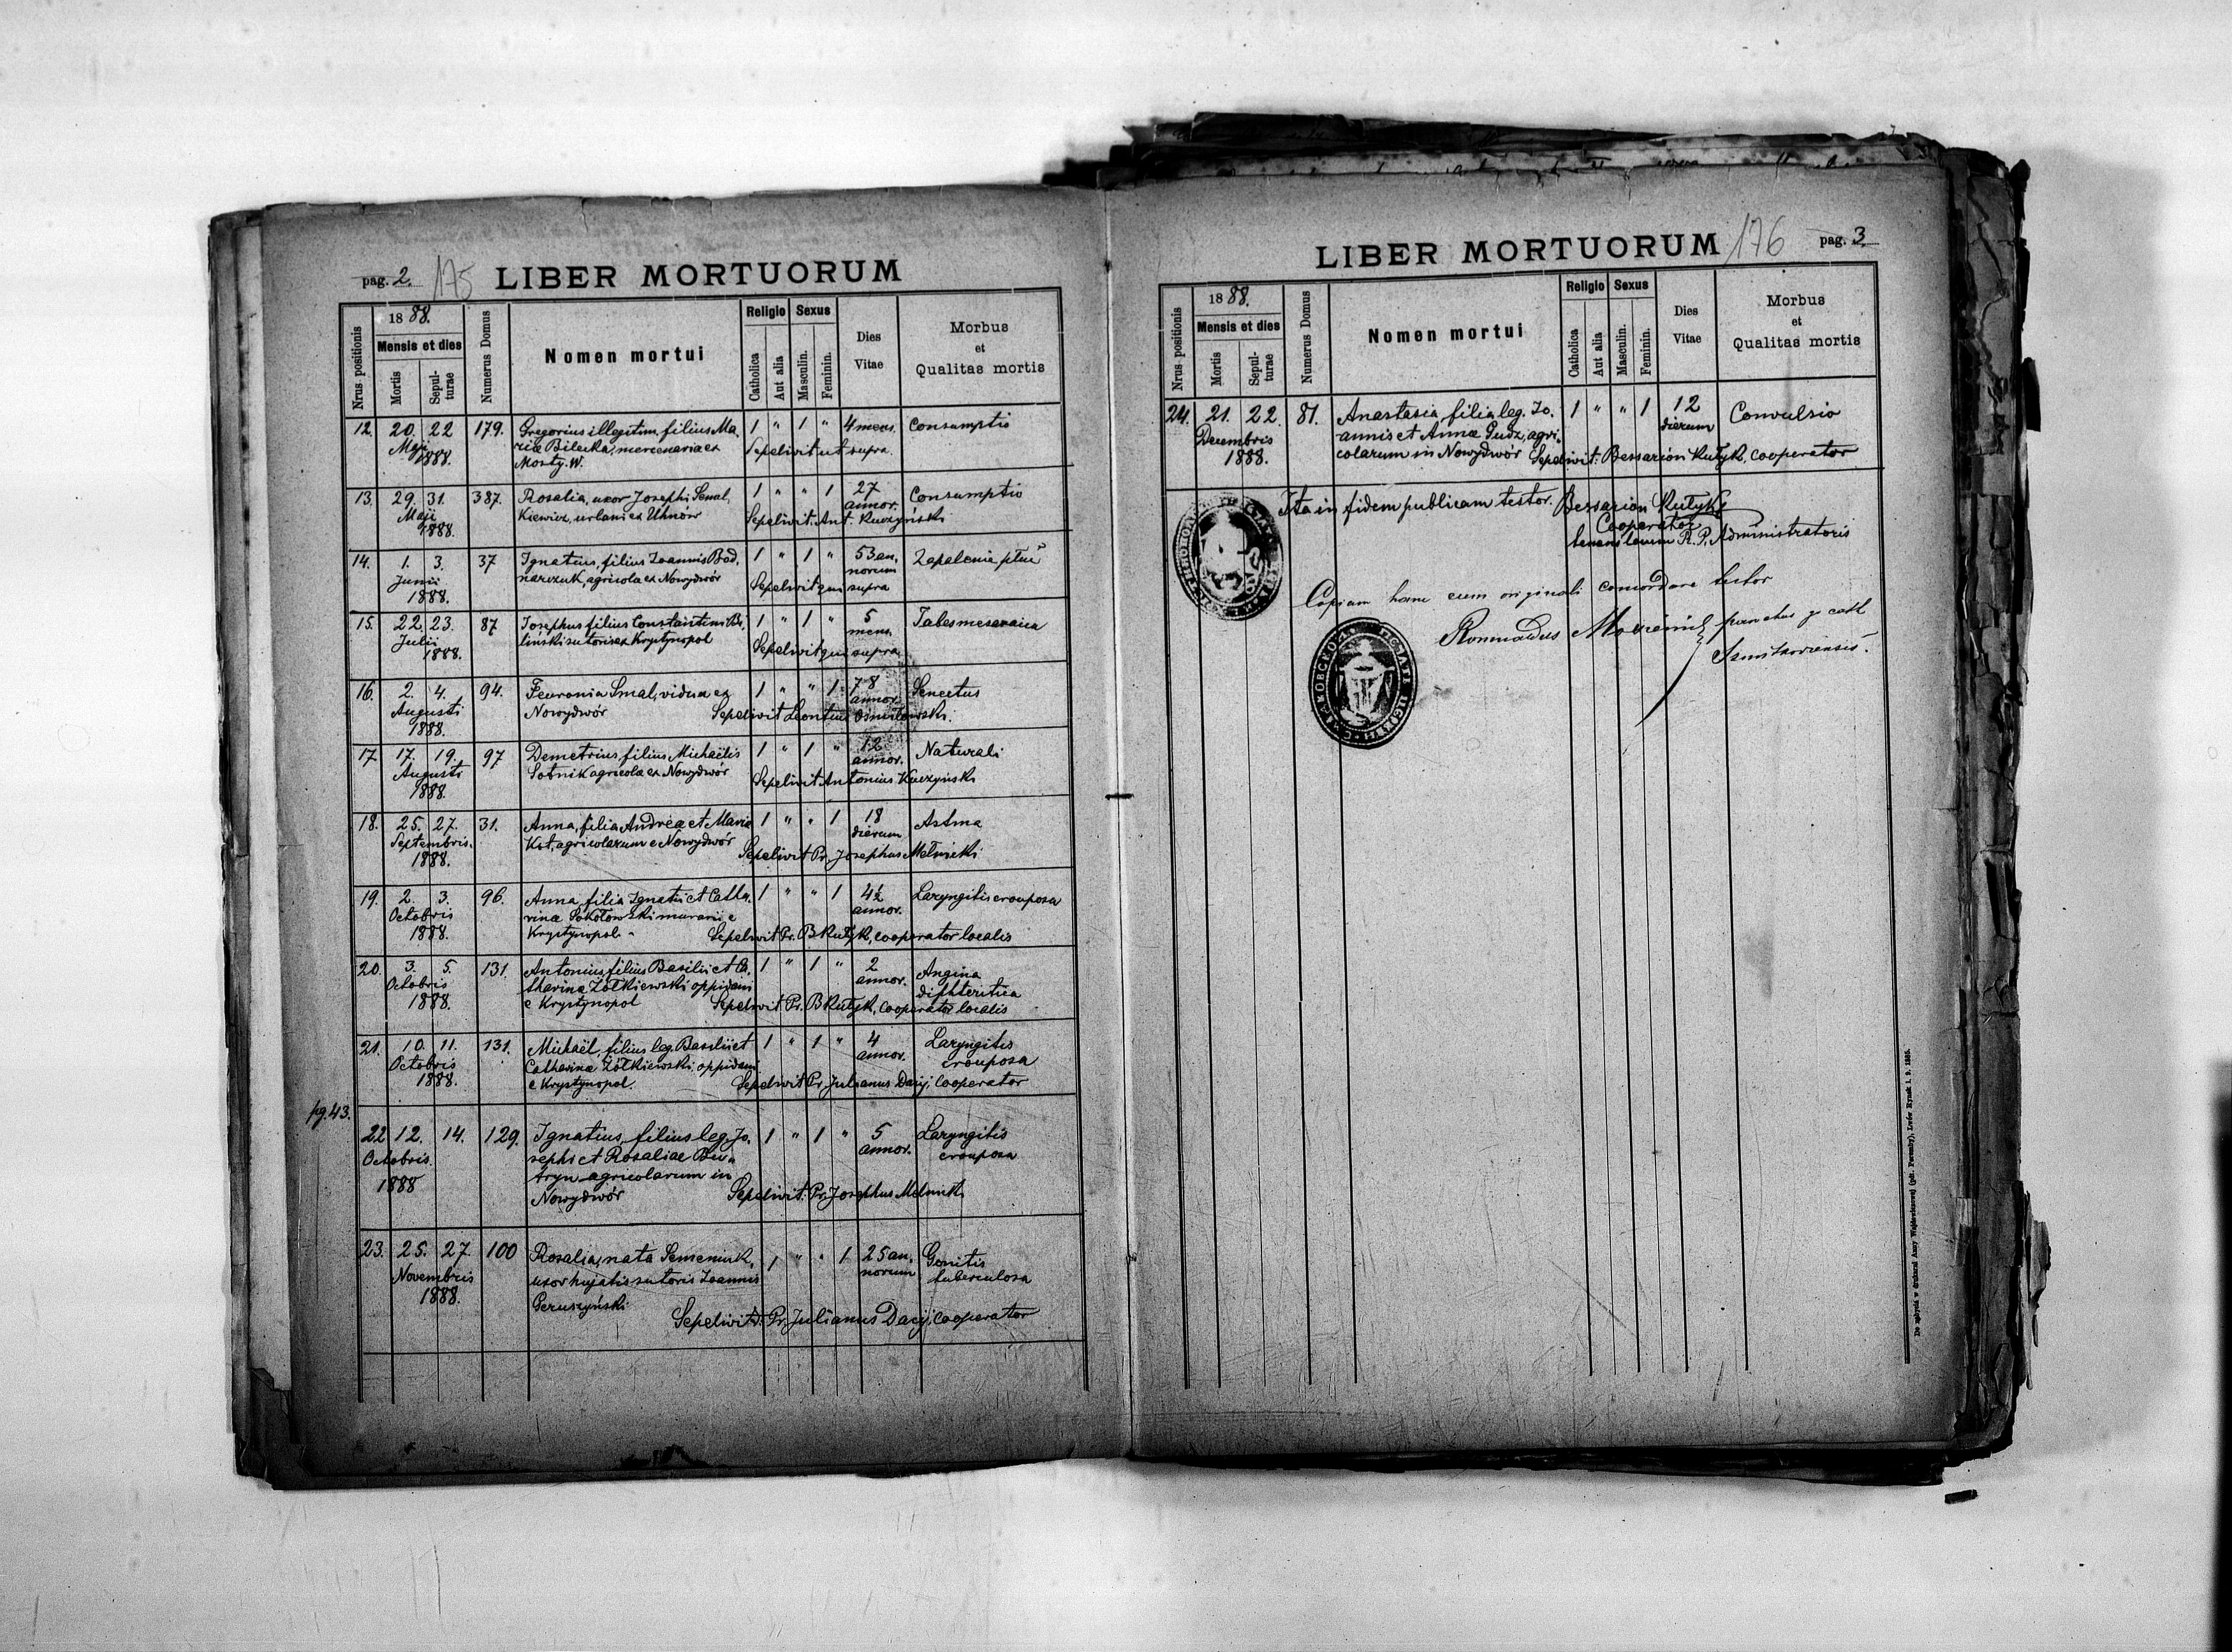 pag. 2. 175 LIBER MORTUORUM
Nrus positionis
1888.
Mensis et dies
Mortis
Sepulturae
Numerus Domus
Nomen mortui
Religio
Catholica
Aut alia
Sexus
Masculin.
Feminin.
Dies Vitae
Morbus et Qualitas mortis
12. 20. 22 179. Gregorius illegitim. filius Ma- 1 " 1 " 4 mens. Consumptio
Maji riæ Bilecka, mercenaria ex Sepelivit ut supra.
1888. Mosty. W.
13. 29. 31. 387. Rosalia, uxor Josephi Semal- 1 " " 1 27 Consumptio
Maji kiewicz, urbani ex Uhnów annor.
1888. Sepelivit. Ant. Kuczyński
14. 1. 3. 37 Ignatius, filius Joannis Bod- 1 " 1 " 53 an- Zapalenie płuc
Junii narczuk, agricola ex Nowydwór norum
1888. Sepelivit qui supra
15. 22. 23. 87 Josephus filius Constantini Bi- 1 " 1 " 5 Tabes mesaraica
Julii liński sutoris ex Krystynopol mens.
1888. Sepelivit qui supra
16. 2. 4. 94. Fevronia Smal, vidua ex 1 " " 1 78 Senectus
Augusti Nowydwór annor.
1888. Sepelivit Leontius Ośmiłowski.
17 17. 19. 97 Demetrius, filius Michaëlis 1 " 1 " 12 Naturali
Augusti Sotnik agricolæ ex Nowydwór annor.
1888. Sepelivit Antonius Kuczyński
18. 25. 27. 31. Anna, filia Andreæ et Maria 1 " " 1 18 Astma
Septembris. Kit, agricolarum e Nowydwór dierum
1888. Sepelivit Pr. Josephus Melnicki
19. 2. 3. 96. Anna, filia Ignatii et Catha- 1 " " 1 4½ Laryngitis crouposa
Octobris rinæ Sokołowski murarii e annor.
1888. Krystynopol Sepelivit Pr. B Kutyk, cooperator localis
20. 3. 5. 131. Antonius, filius Basilii et Ca- 1 " 1 " 2 Angina
Octobris tharinæ Żółkiewski oppidani annor. diphteritica
1888. e Krystynopol Sepelivit Pr. B Kutyk, cooperator localis
21. 10. 11. 131. Michaël, filius leg. Basilii et 1 " 1 " 4 Laryngitis
Octobris Catharinæ Żółkiewski oppidani annor. crouposa
1888. e Krystynopol. Sepelivit Pr. Julianus Dacij, Cooperator
pg. 43.
22 12. 14. 129. Ignatius, filius leg. Jo- 1 " 1 " 5 Laryngitis
Octobris. sephi et Rosaliae annor. crouposa
1888 agricolarum in
Nowydwór Sepelivit. Pr. Josephus Melnicki
23. 25. 27. 100 Rosalia, nata Semeniuk, 1 " " 1 25 an- Gonitis
Novembris uxor hujatis sutoris Joannis norum tuberculosa
1888. Geruszyński
Sepelivit. Pr. Julianus Dacij, Cooperator
LIBER MORTUORUM 176 pag. 3
Nrus positionis
1888.
Mensis et dies
Mortis
Sepulturae
Numerus Domus
Nomen mortui
Religio
Catholica
Aut alia
Sexus
Masculin.
Feminin.
Dies Vitae
Morbus et Qualitas mortis
24. 21. 22. 81. Anastasia, filia leg. Jo- 1 " " 1 12 Convulsio
Decembris annis et Annæ Gudz, agri- dierum
1888. colarum in Nowydwór Sepelivit. Bessarion Kutyk, cooperator
Ita in fidem publicam testor. Bessarion Kutyk
Cooperator
R. P. Administratoris
Copiam hanc cum originali concordare testor
Romualdus parochus gr cath